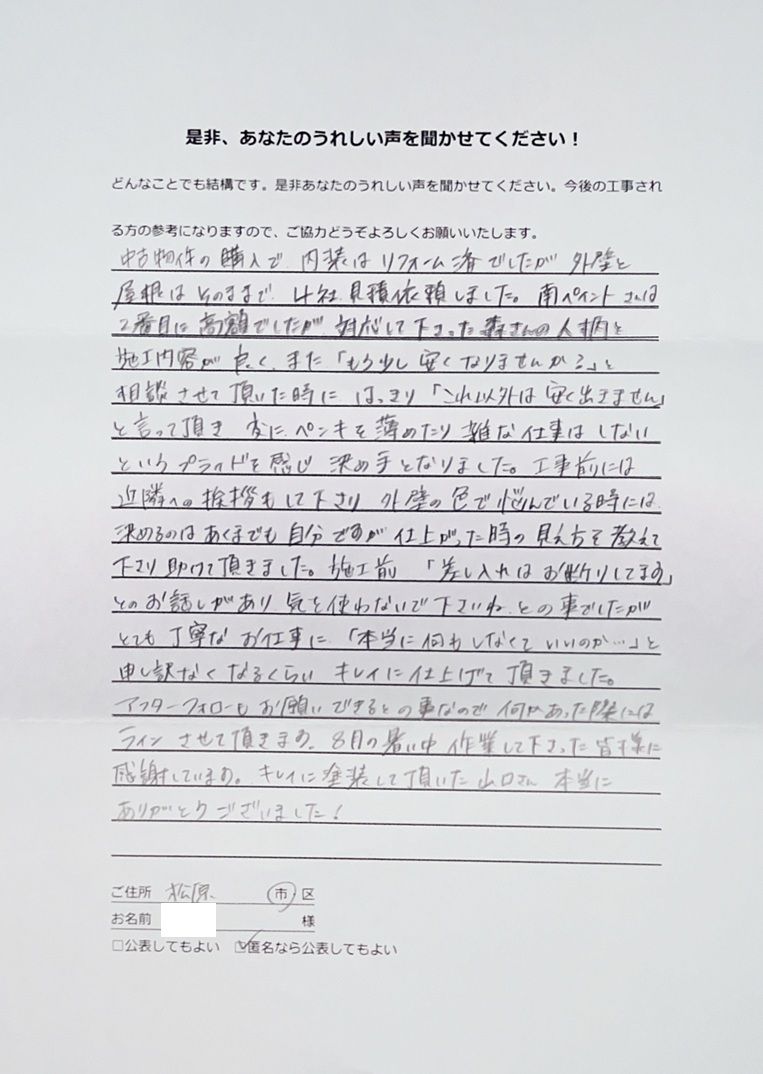 是非、あなたのうれしい声を聞かせてください！
どんなことでも結構です。是非あなたのうれしい声を聞かせてください。今後の工事され
る方の参考になりますので、ご協力どうぞよろしくお願いいたします。
中古物件の購入で、内装はリフォーム済でしたが外壁と
屋根はそのままで、4社見積依頼しました。南ペイントさんは
2番目に高額でしたが対応して下さった森さんの人柄と
施工内容が良く、また「もう少し安くなりませんか？」と
相談させて頂いた時に、はっきり「これ以外は安く出きません」
と言って頂き 変にペンキを薄めたり雑な仕事はしない
というプライドを感じ 決め手となりました。工事前には
近隣への挨拶もして下さり 外壁の色で悩んでいる時には
決めるのはあくまでも自分ですが仕上がった時の見え方を教えて
下さり助けて頂きました。施工前 「差し入れはお断りしてます」
とのお話しがあり 気を使わないで下さいね、との事でしたが
とても丁寧なお仕事に「本当に何もしなくていいのか…」と
申し訳なくなるくらい キレイに仕上げて頂きました。
アフターフォローもお願いできるとの事なので何かあった際には
ラインさせて頂きます。8月の暑い中作業して下さった皆様に
感謝しています。キレイに塗装して頂いた山口さん 本当に
ありがとうございました！
ご住所 松原 市 区
お名前 様
□公表してもよい ☑匿名なら公表してもよい